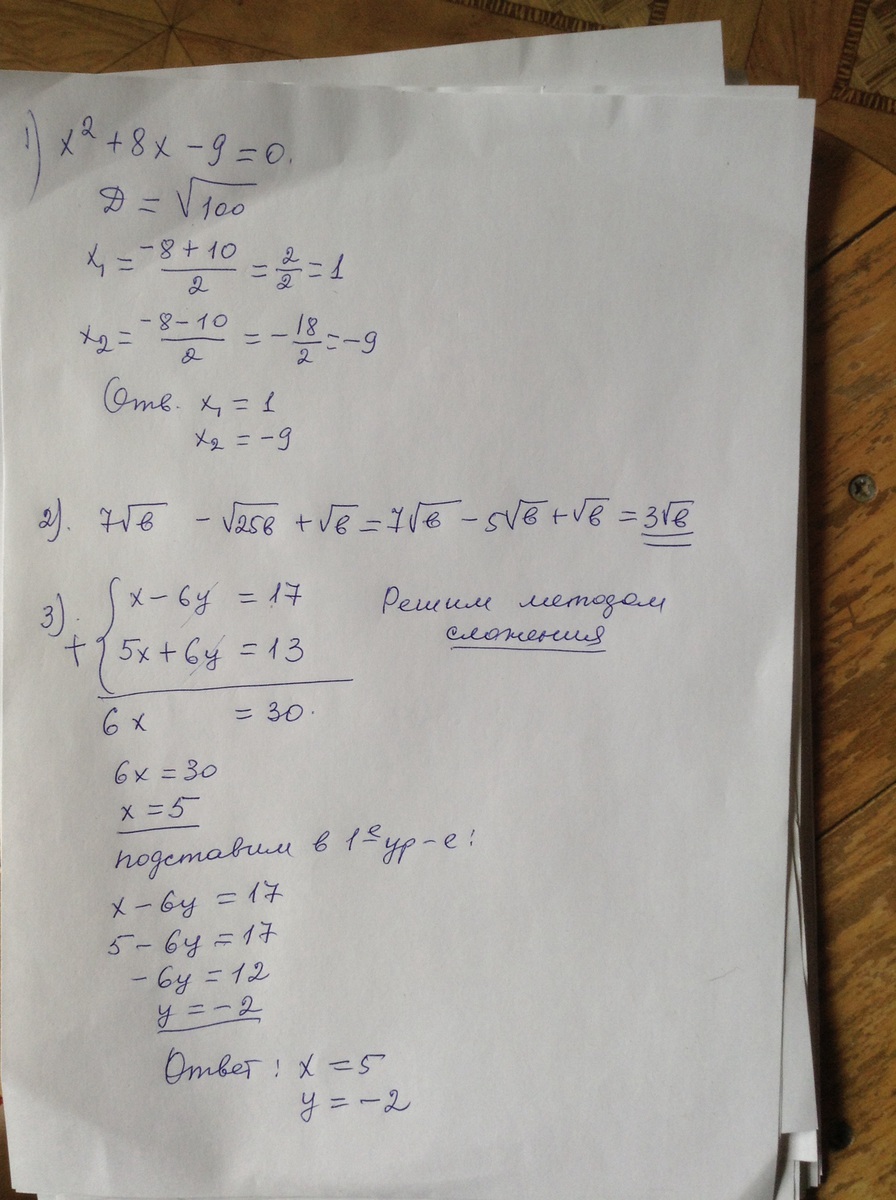 1) x² + 8x - 9 = 0.
Д = √100
x₁ = (-8 + 10)/2 = 2/2 = 1
x₂ = (-8 - 10)/2 = -18/2 = -9
Отв. x₁ = 1
x₂ = -9
2). 7√в - √25в + √в = 7√в - 5√в + √в = 3√в
3). { x - 6y = 17 Решим методом
+ 5x + 6y = 13 сложения
6x = 30.
6x = 30
x = 5
подставим в 1е ур-е:
x - 6y = 17
5 - 6y = 17
- 6y = 12
y = -2
Ответ: x = 5
y = -2